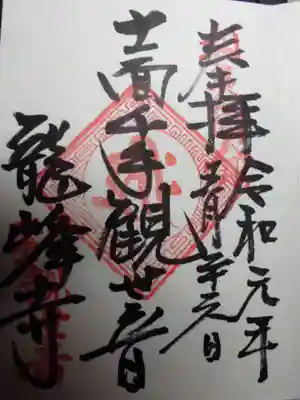 奉拝
令和元年
十一面千手観世音
龍峰寺